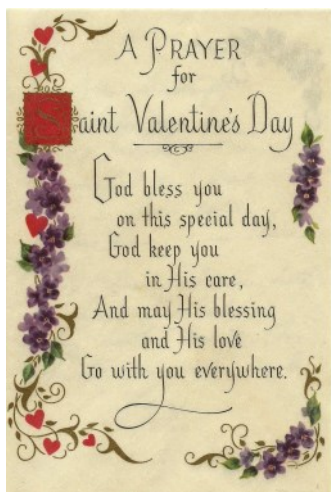 A PRAYER
for
Saint Valentine's Day
God bless you
on this special day,
God keep you
in His care,
And may His blessing
and His love
Go with you everywhere.